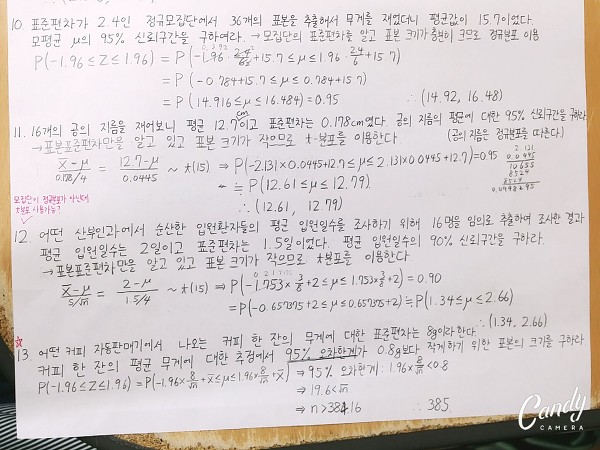 10. 표준편차가 2.4인 정규모집단에서 36개의 표본을 추출해서 무게를 재었더니 평균값이 15.7이었다.
모평균 μ의 95% 신뢰구간을 구하여라. → 모집단의 표준편차를 알고 표본 크기가 충분히 크므로 정규분포 이용
P(-1.96 ≤ Z ≤ 1.96) = P(-1.96 × 2.4/6 + 15.7 ≤ μ ≤ 1.96 · 2.4/6 + 15.7)
= P(-0.784+15.7 ≤ μ ≤ 0.784+15.7)
= P(14.916 ≤ μ ≤ 16.484) = 0.95 ∴ (14.92, 16.48)
11. 16개의 공의 지름을 재어보니 평균 12.7cm이고 표준편차는 0.178cm였다. 공의 지름의 평균에 대한 95% 신뢰구간을 구하라.
→ 표본표준편차만을 알고 있고 표본 크기가 작으므로 t-분포를 이용한다. (공의 지름은 정규분포를 따른다.)
x̄-μ / 0.178/4 = 12.7-μ / 0.0445 ~ t(15) ⇒ P(-2.131×0.0445+12.7 ≤ μ ≤ 2.131×0.0445+12.7) = 0.95
2.131
0.0445
10655
8524
8524
0.0948295
≒ P(12.61 ≤ μ ≤ 12.79)
∴ (12.61, 12.79)
모집단이 정규분포가 아닌데
t분포 사용가능?
12. 어떤 산부인과에서 순산한 입원환자들의 평균 입원일수를 조사하기 위해 16명을 임의로 추출하여 조사한 결과
평균 입원일수는 2일이고 표준편차는 1.5일이었다. 평균 입원일수의 90% 신뢰구간을 구하라.
→ 표본표준편차만을 알고 있고 표본 크기가 작으므로 t분포를 이용한다
x̄-μ / s/√n = 2-μ / 1.5/4 ~ t(15) ⇒ P(-1.753×3/8+2 ≤ μ ≤ 1.753×3/8+2) = 0.90
= P(-0.657375+2 ≤ μ ≤ 0.657375+2) ≒ P(1.34 ≤ μ ≤ 2.66)
∴ (1.34, 2.66)
☆
13. 어떤 커피 자동판매기에서 나오는 커피 한 잔의 무게에 대한 표준편차는 8g이라한다.
커피 한 잔의 평균 무게에 대한 추정에서 95% 오차한계가 0.8g보다 작게하기 위한 표본의 크기를 구하라
P(-1.96 ≤ Z ≤ 1.96) = P(-1.96×8/√n + x̄ ≤ μ ≤ 1.96×8/√n + x̄) ⇒ 95% 오차한계 : 1.96×8/√n < 0.8
⇒ 19.6 < √n
⇒ n > 384.16 ∴ 385.
Candy
CAMERA